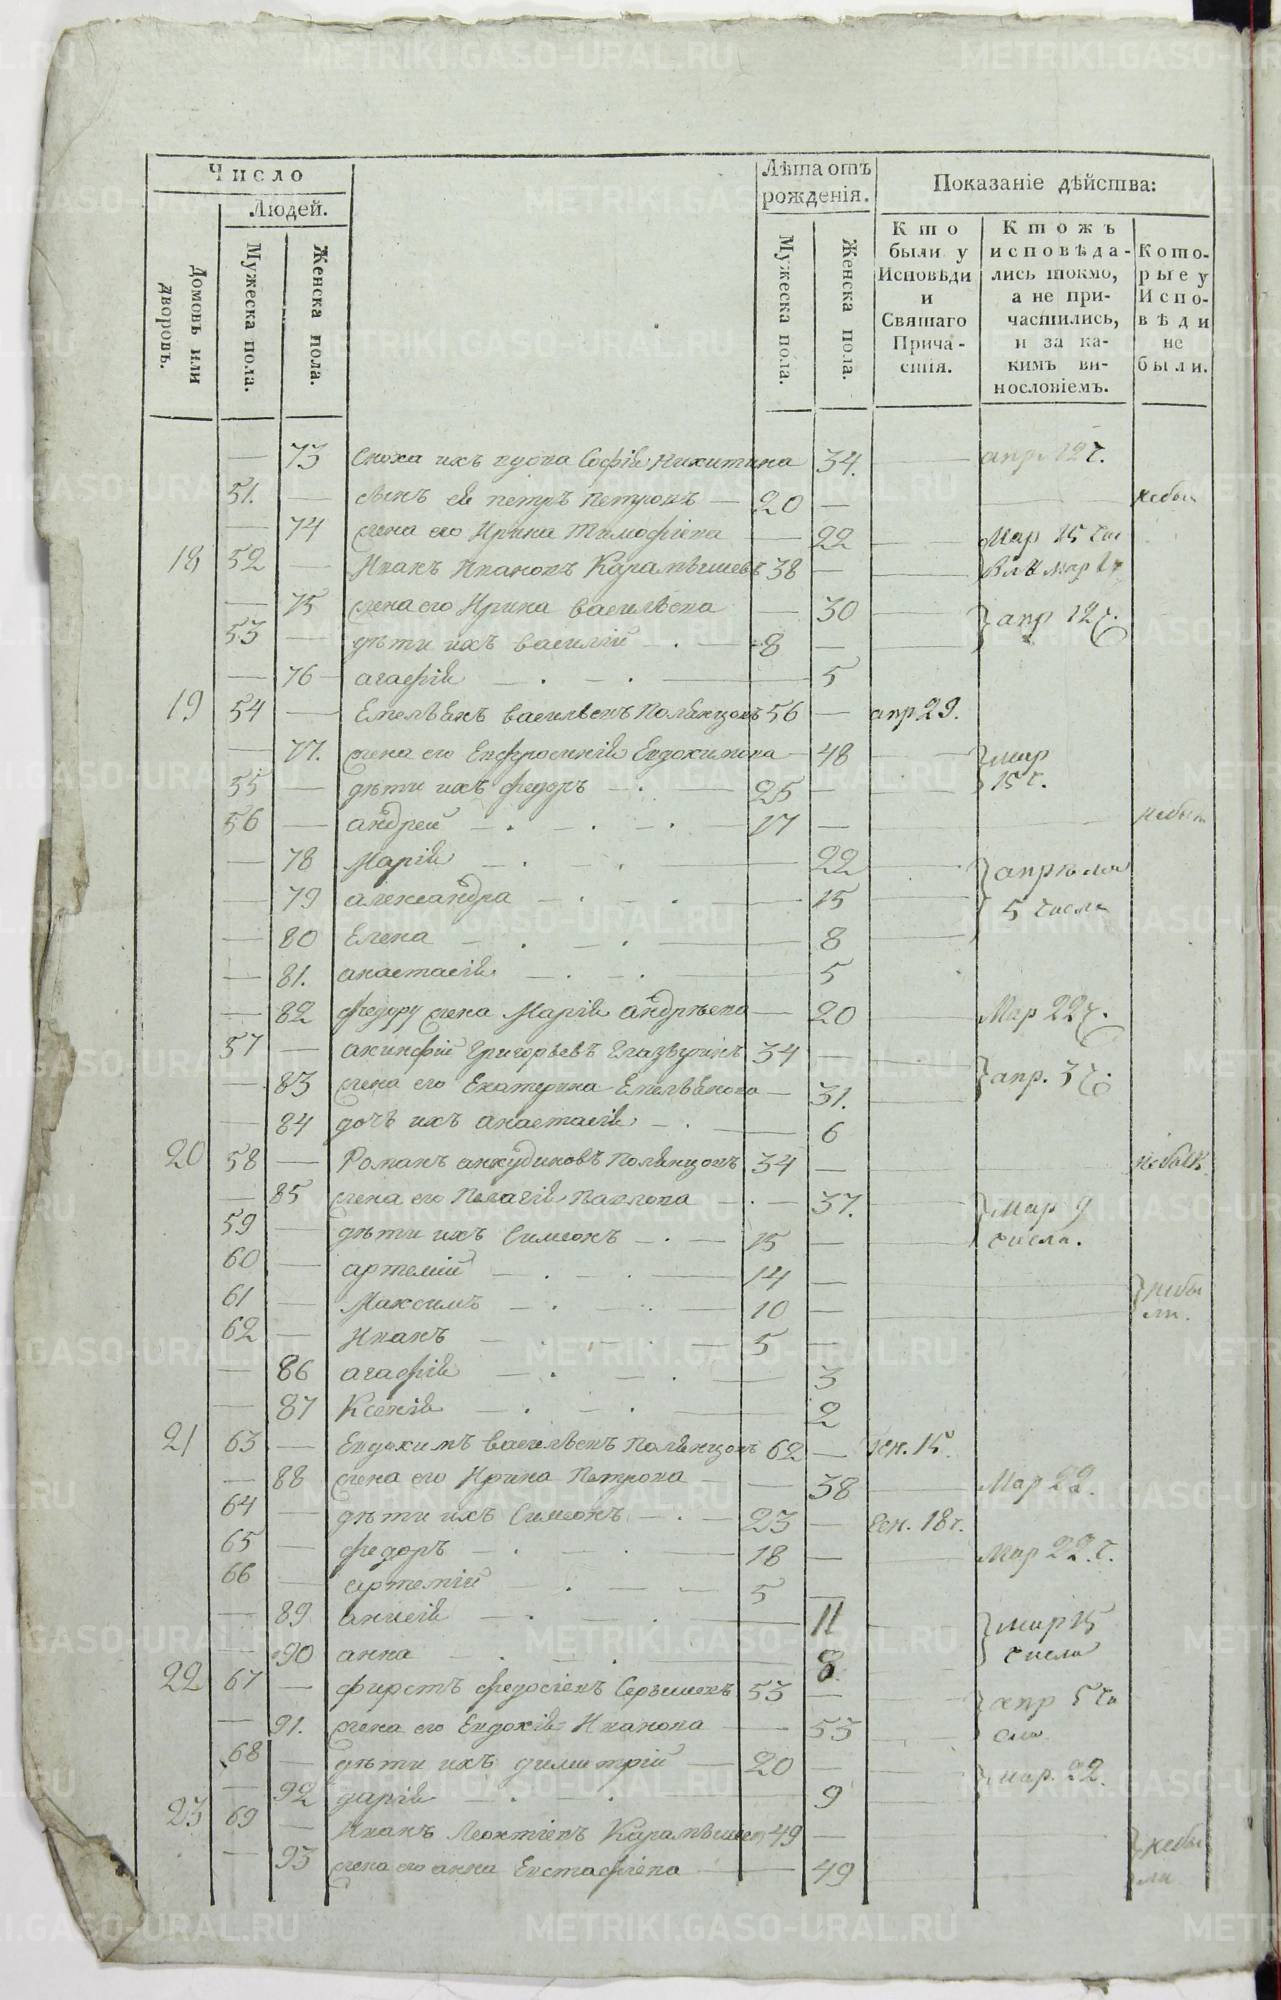 Число
Людей.
Домовъ или дворовъ.
Мужеска пола.
Женска пола.
Лѣта отъ рожденія.
Мужеска пола.
Женска пола.
Показаніе дѣйства:
Кто были у Исповѣди и Святаго Причастія.
Ктожъ исповѣдались токмо, а не причастились, и за какимъ винословіемъ.
Которые у Исповѣди не были.
— 73 Сноха ихъ вдова Софія Никитина 34. — апр. 12 ч.
51. — сынъ ея петръ Петровъ — 20 — небы
— 74 жена его Ирина Тимофѣева — 22 — Мар 15 чис
18 52 — Иванъ Ивановъ Карамышевъ 38 —
— 75 жена его Ирина васильева — 30 — апр 12 ч.
53 — дѣти ихъ василій — 8 —
— 76 агафія — 5
19 54 — Емельянъ васильевъ Полянцовъ 56 — апр 29.
— 77. жена его Евфросинія Евдокимова — 48 — мар
55 — дѣти ихъ федоръ — 25 — 15 ч.
56 — андрей — 17 — небыл
— 78 Марія — 22 — апрѣля
— 79 александра — 15 — 5 числа
— 80 Елена — 8
— 81. анастасія — 5
— 82 федору жена Марія андрѣева — 20 — Мар 22 ч.
57 — акинфій Григорьевъ Глазыринъ 34 —
— 83 жена его Екатерина Емельянова — 31. — апр. 3 ч.
— 84 дочь ихъ анастасія — 6
20 58 — Романъ анкудиновъ Полянцовъ 34 — небылъ
— 85 жена его Пелагія Павлова — 37. — Мар 9
59 — дѣти ихъ Симеонъ — 15 — числа.
60 — артемій — 14 — небы
61 — Максимъ — 10 — ли.
62 — Иванъ — 5 —
— 86 агафія — 3
— 87 Ксенія — 2
21 63 — Евдокимъ васильевъ Полянцовъ 62 — Ген. 15.
— 88 жена его Ирина Петрова — 38 — Мар 22.
64 — дѣти ихъ Симеонъ — 23 — Ген. 18 ч.
65 — федоръ — 18 — Мар 22. ч.
66 — артемій — 5 —
— 89 анисія — 11 — мар 15
— 90 анна — 8. — числа
22 67 — фирстъ федосѣевъ 53 — апр 5 чи
— 91. жена его Евдокія Иванова — 53 — сла
68 — дѣти ихъ димитрій — 20 — мар. 22.
— 92 дарія — 9
23 69 — Иванъ Леонтіевъ Карамышев 49 — небы
— 93 жена его анна Евстафіева — 49 — ли
METRIKI.GASO-URAL.RU